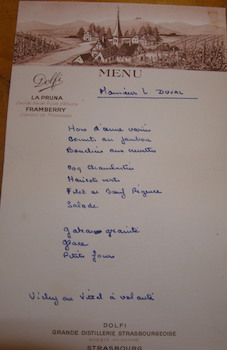 MENU
Dolfi
Monsieur L DUVAL
LA PRUNA
FRAMBERRY
Hors d'œuvre variés
au jambon
Bouchées aux
Coq Chambertin
Haricots verts
Filet de Bœuf Régence
Salade
Gateaux
Glace
Petits fours
Vichy ou Vittel à volonté
DOLFI
GRANDE DISTILLERIE STRASBOURGEOISE
STRASBOURG